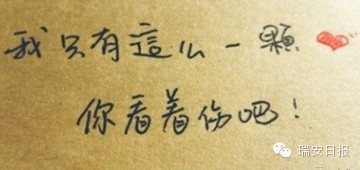 我只有這么一顆❤
你看着伤吧！
瑞安日报